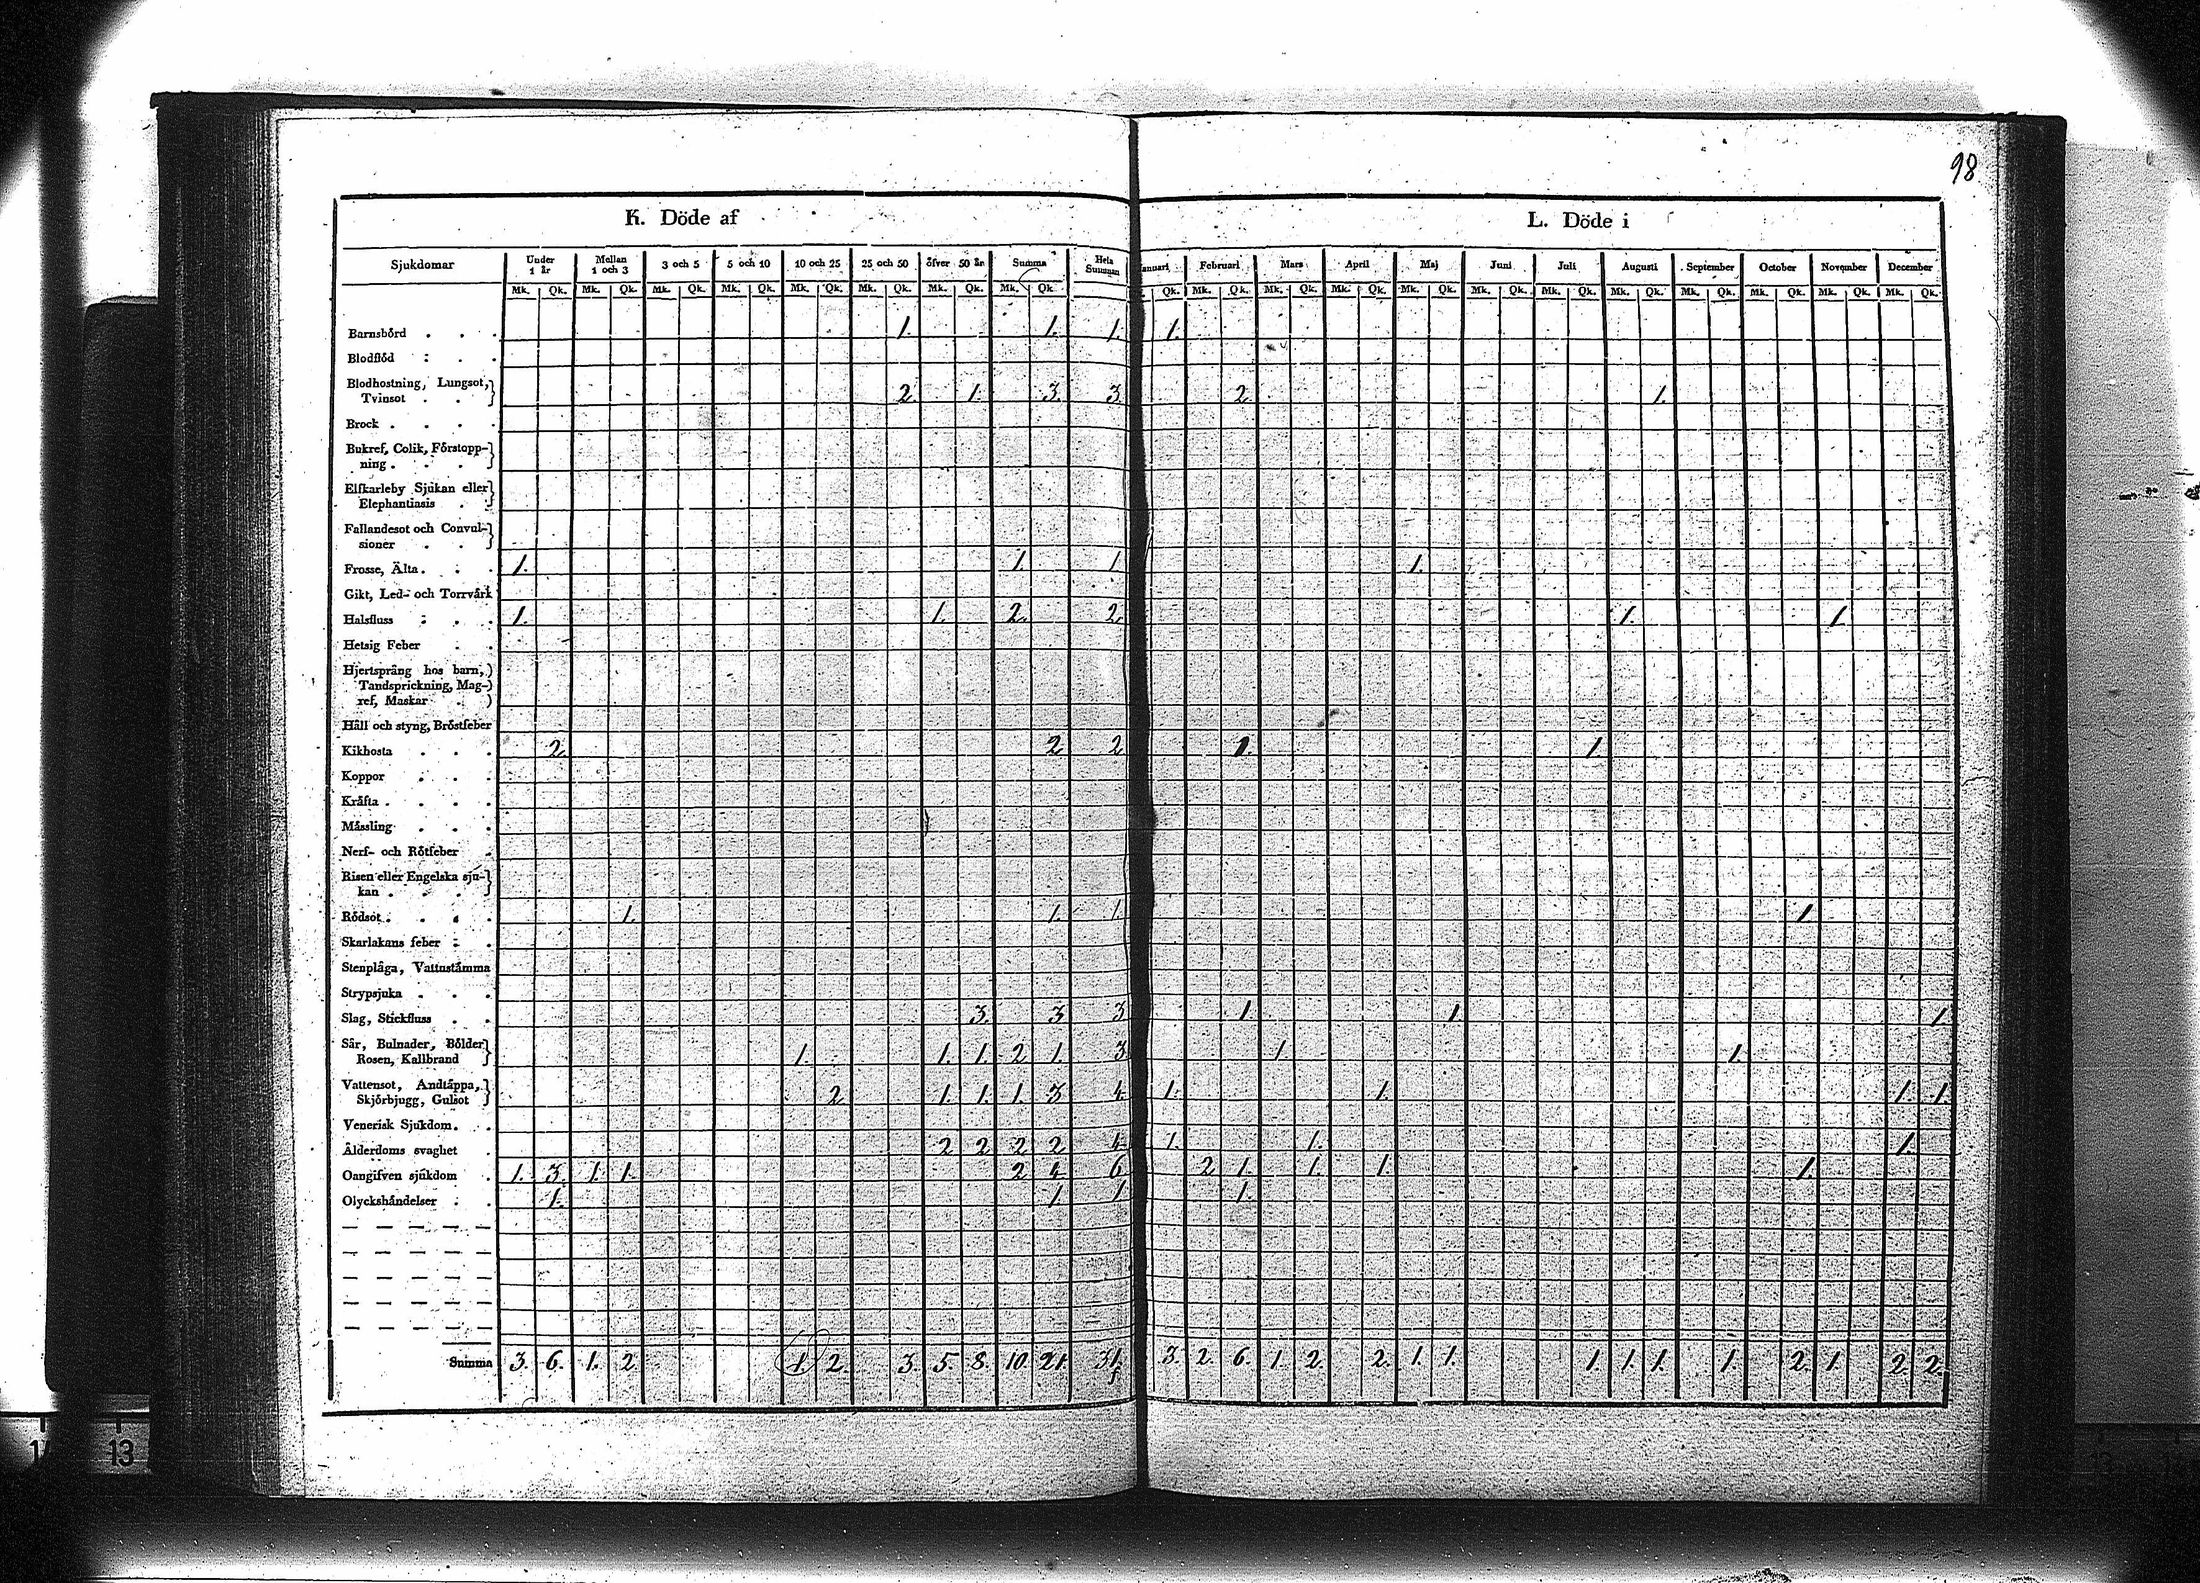 98
K. Döde af
L. Döde i
Sjukdomar Under 1 år Mellan 1 och 3 3 och 5 5 och 10 10 och 25 25 och 50 öfver 50 år Summa Hela Summan
anuari Februari Mars April Maj Juni Juli Augusti September October November December
Mk. Qk. Mk. Qk. Mk. Qk. Mk. Qk. Mk. Qk. Mk. Qk. Mk. Qk. Mk. Qk.
Qk. Mk. Qk. Mk. Qk. Mk. Qk. Mk. Qk. Mk. Qk. Mk. Qk. Mk. Qk. Mk. Qk. Mk. Qk. Mk. Qk. Mk. Qk.
Barnsbörd . . . 1. 1. 1. 1.
Blodflöd : . .
Blodhostning, Lungsot,
Tvinsot . . 2 1. 3. 3 2 1.
Brock . . . .
Bukref, Colik, Förstopp-
ning . . .
Elfkarleby Sjukan eller
Elephantiasis .
Fallandesot och Convul-
sioner . .
Frosse, Älta . . . 1. 1. 1 1.
Gikt, Led- och Torrvärk
Halsfluss : . . 1. 1. 2. 2. 1. 1.
Hetsig Feber . .
Hjertsprång hos barn,
Tandsprickning, Mag-
ref, Maskar .
Håll och styng, Bröstfeber
Kikhosta . . . 2. 2 2 1. 1.
Koppor . . .
Kräfta . . . .
Mässling . . .
Nerf- och Rötfeber .
Risen eller Engelska sju-
kan . . .
Rödsot . . . . 1. 1. 1. 1.
Skarlakans feber : .
Stenplåga, Vattustämma
Strypsjuka . . .
Slag, Stickfluss . . 3. 3 3 1. 1. 1.
Sår, Bulnader, Bölder
Rosen, Kallbrand 1. 1. 1. 2 1. 3 1. 1.
Vattensot, Andtäppa,
Skjörbjugg, Gulsot 2 1. 1. 1. 3 4. 1. 1. 1. 1.
Venerisk Sjukdom . .
Ålderdoms svaghet . 2 2 2 2 4. 1. 1. 1.
Oangifven sjukdom . 1. 3. 1. 1. 2 4. 6 2 1. 1. 1. 1.
Olyckshändelser . . 1. 1. 1 1.
Summa 3. 6. 1. 2. 1. 2. 3. 5. 8. 10. 21. 31. 3. 2. 6. 1. 2. 2. 1. 1. 1. 1. 1. 1. 2. 1. 2. 2.
13